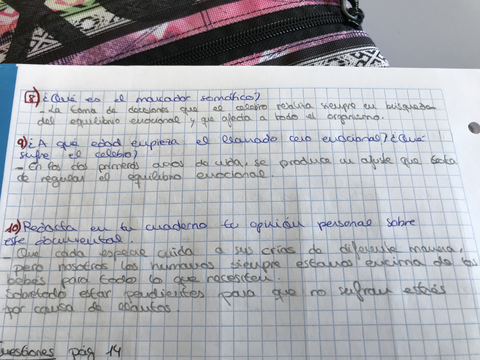 8) ¿Qué es el marcador somático?
- La toma de decisiones que el celebro realiza siempre en busqueda
del equilibrio emocional y que afecta a todo el organismo.
9) ¿A que edad empieza el llamado cero emocional? ¿Qué
sufre el celebro?
- En los dos primeros años de vida, se produce un ajuste que trata
de regular el equilibrio emocional.
10) Redacta en tu cuaderno tu opinión personal sobre
este documental.
- Que cada especie cuida a sus crías de diferente manera,
pero nosotros los humanos siempre estamos encima de los
bebés para todo lo que necesiten.
Sobretodo estar pendientes para que no sufran estrés
por causa de
uestiones pág 14